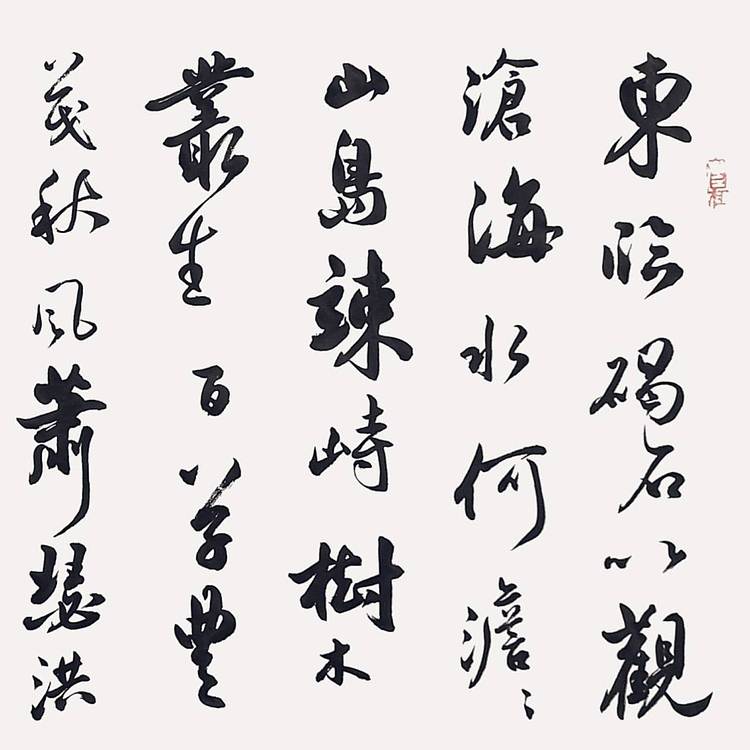 東臨碣石以觀
滄海水何澹〻
山島竦峙樹木
叢生百草豐
茂秋風蕭瑟洪